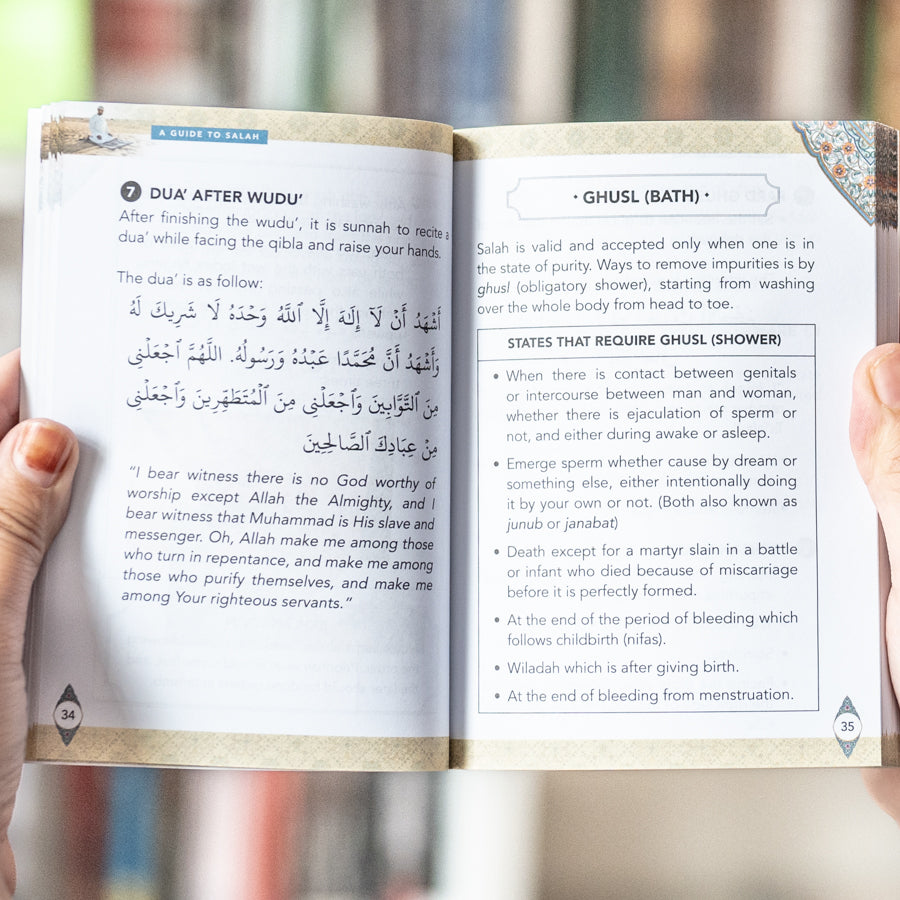 A GUIDE TO SALAH
7 DUA’ AFTER WUDU’
After finishing the wudu’, it is sunnah to recite a
dua’ while facing the qibla and raise your hands.
The dua’ is as follow:
أَشْهَدُ أَنْ لَآ إِلَـٰهَ إِلَّا ٱللَّهُ وَحْدَهُ لَا شَرِيكَ لَهُ
وَأَشْهَدُ أَنَّ مُحَمَّدًا عَبْدُهُ وَرَسُولُهُ. اللَّهُمَّ ٱجْعَلْنِى
مِنَ ٱلتَّوَّابِينَ وَٱجْعَلْنِى مِنَ ٱلْمُتَطَهِّرِينَ وَٱجْعَلْنِى
مِنْ عِبَادِكَ ٱلصَّالِحِينَ
“I bear witness there is no God worthy of
worship except Allah the Almighty, and I
bear witness that Muhammad is His slave and
messenger. Oh, Allah make me among those
who turn in repentance, and make me among
those who purify themselves, and make me
among Your righteous servants.”
34
• GHUSL (BATH) •
Salah is valid and accepted only when one is in
the state of purity. Ways to remove impurities is by
ghusl (obligatory shower), starting from washing
over the whole body from head to toe.
STATES THAT REQUIRE GHUSL (SHOWER)
• When there is contact between genitals
or intercourse between man and woman,
whether there is ejaculation of sperm or
not, and either during awake or asleep.
• Emerge sperm whether cause by dream or
something else, either intentionally doing
it by your own or not. (Both also known as
junub or janabat)
• Death except for a martyr slain in a battle
or infant who died because of miscarriage
before it is perfectly formed.
• At the end of the period of bleeding which
follows childbirth (nifas).
• Wiladah which is after giving birth.
• At the end of bleeding from menstruation.
35